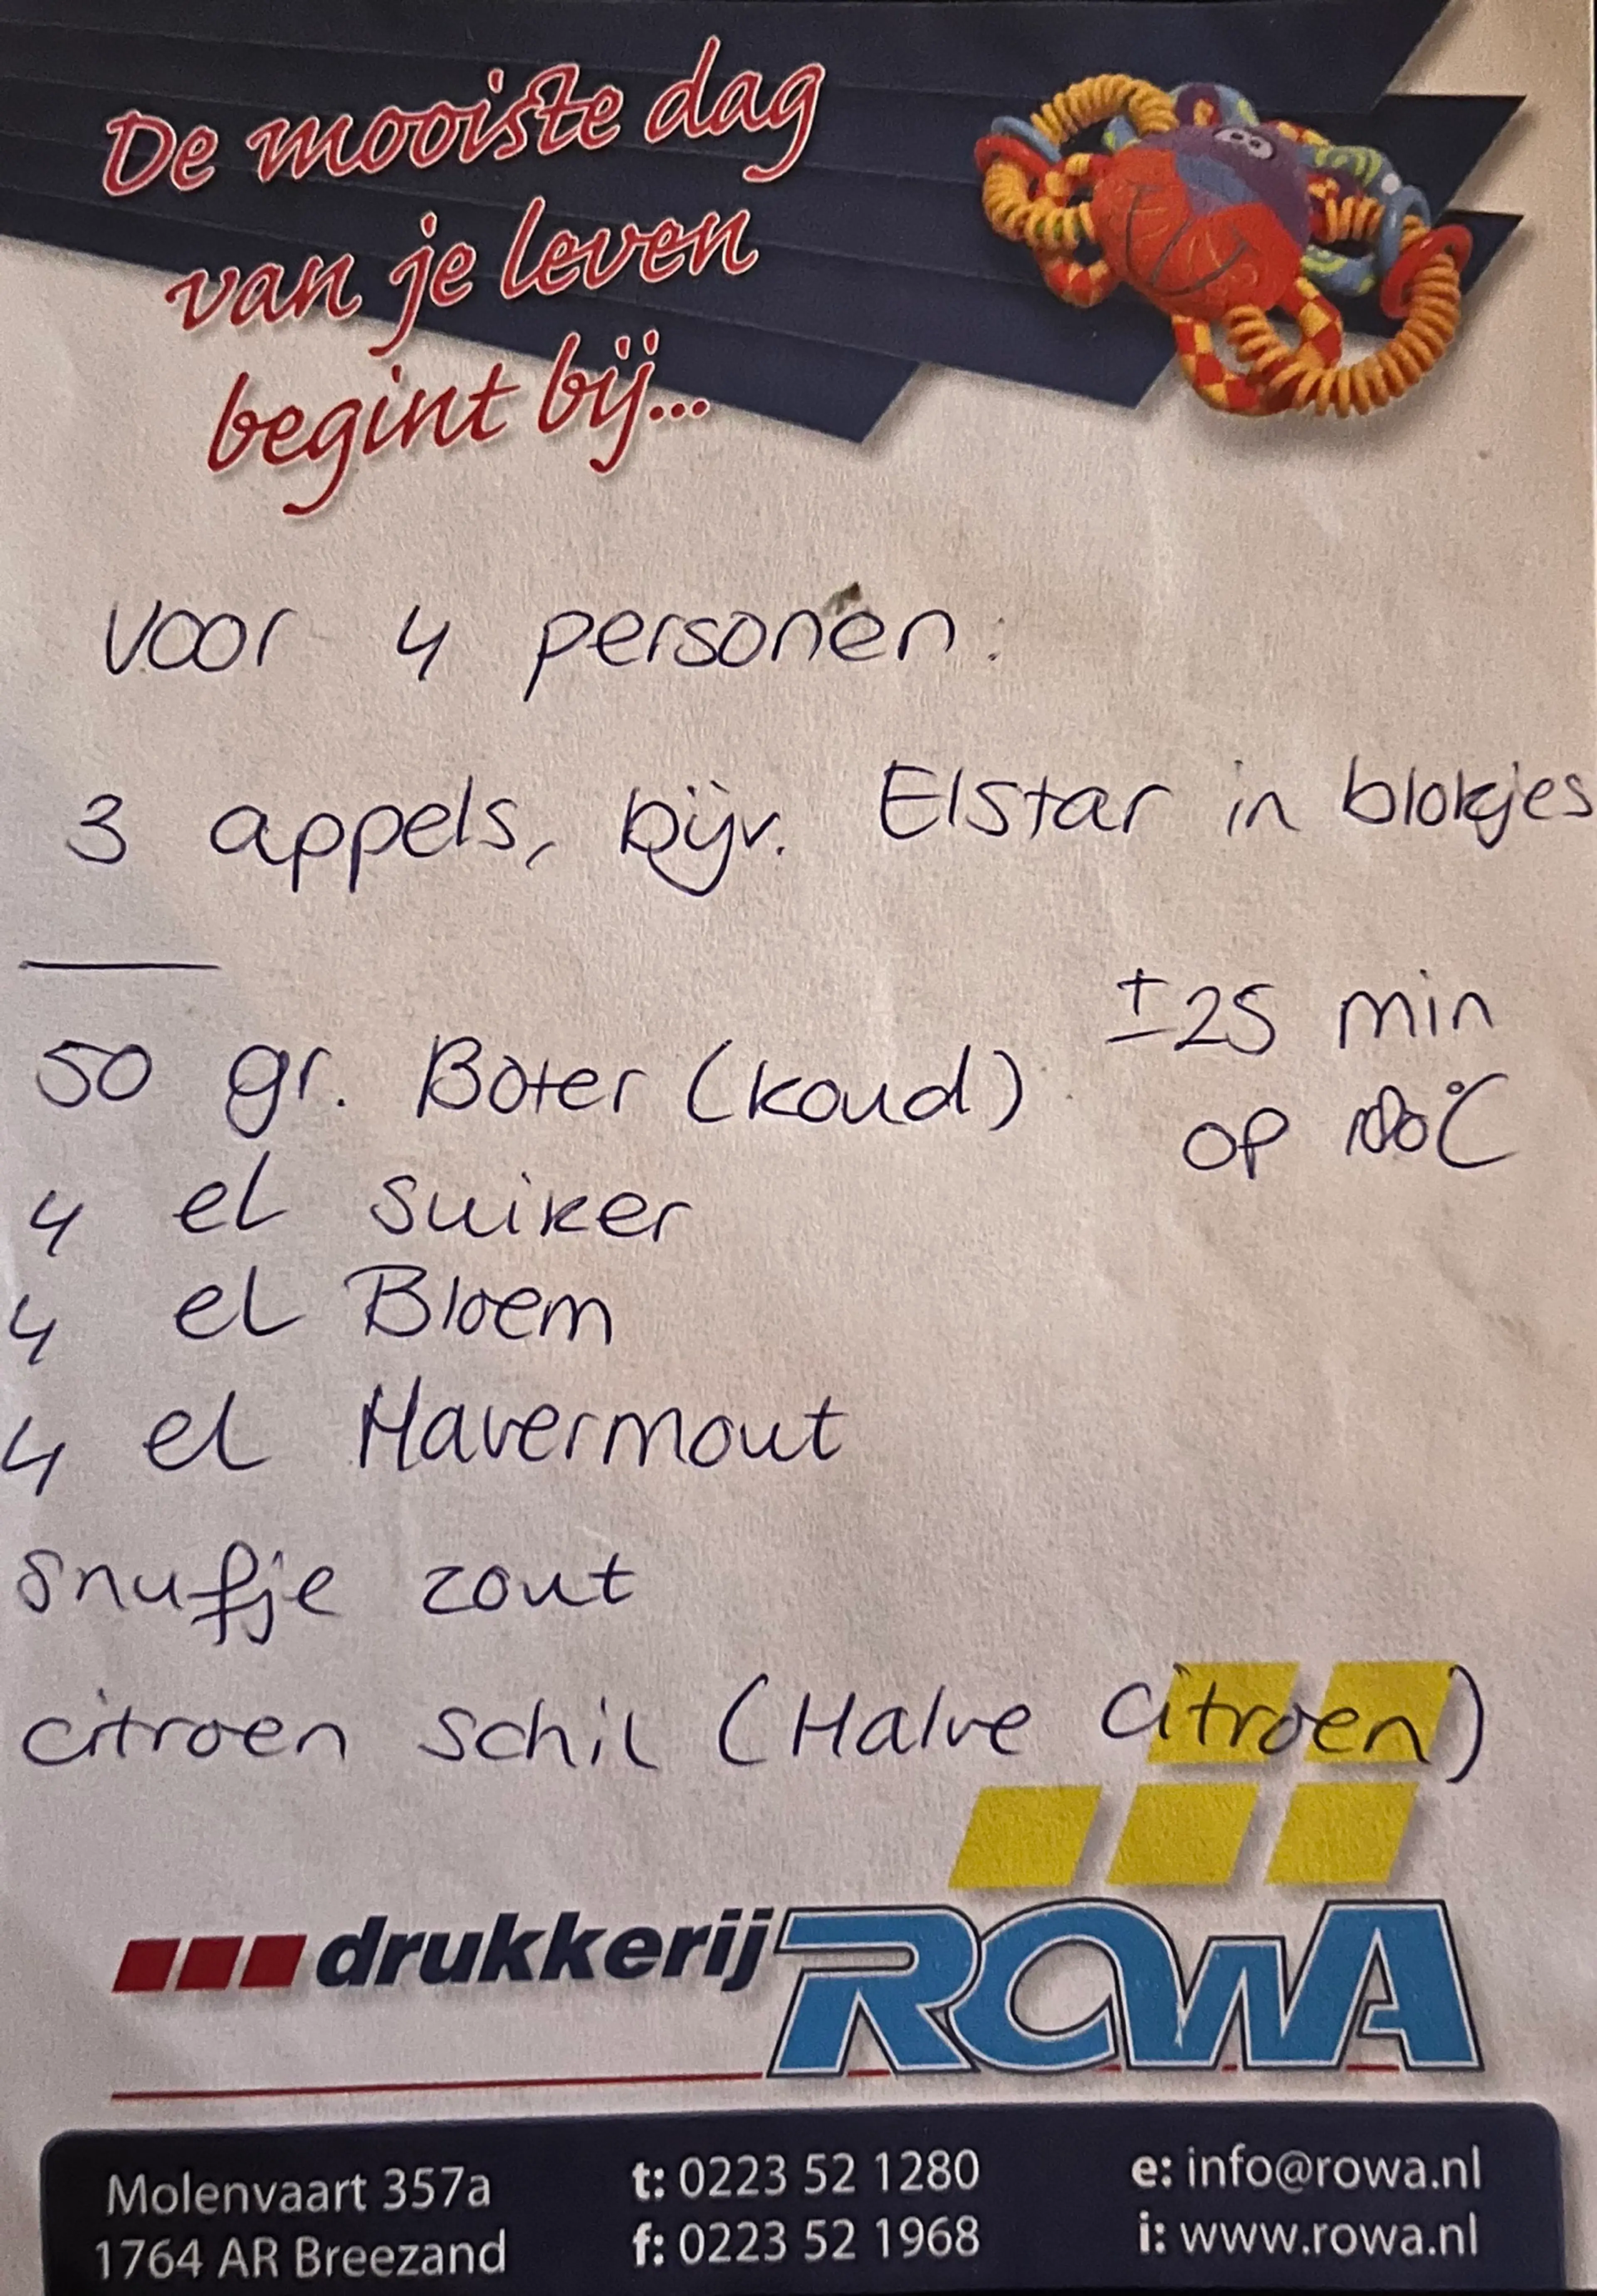 De mooiste dag
van je leven
begint bij...
voor 4 personen:
3 appels, bijv. Elstar in blokjes
± 25 min
op 180°C
50 gr. Boter (koud)
4 el suiker
4 el Bloem
4 el Havermout
snufje zout
citroen schil (Halve citroen)
drukkerij ROWA
Molenvaart 357a
1764 AR Breezand
t: 0223 52 1280
f: 0223 52 1968
e: info@rowa.nl
i: www.rowa.nl